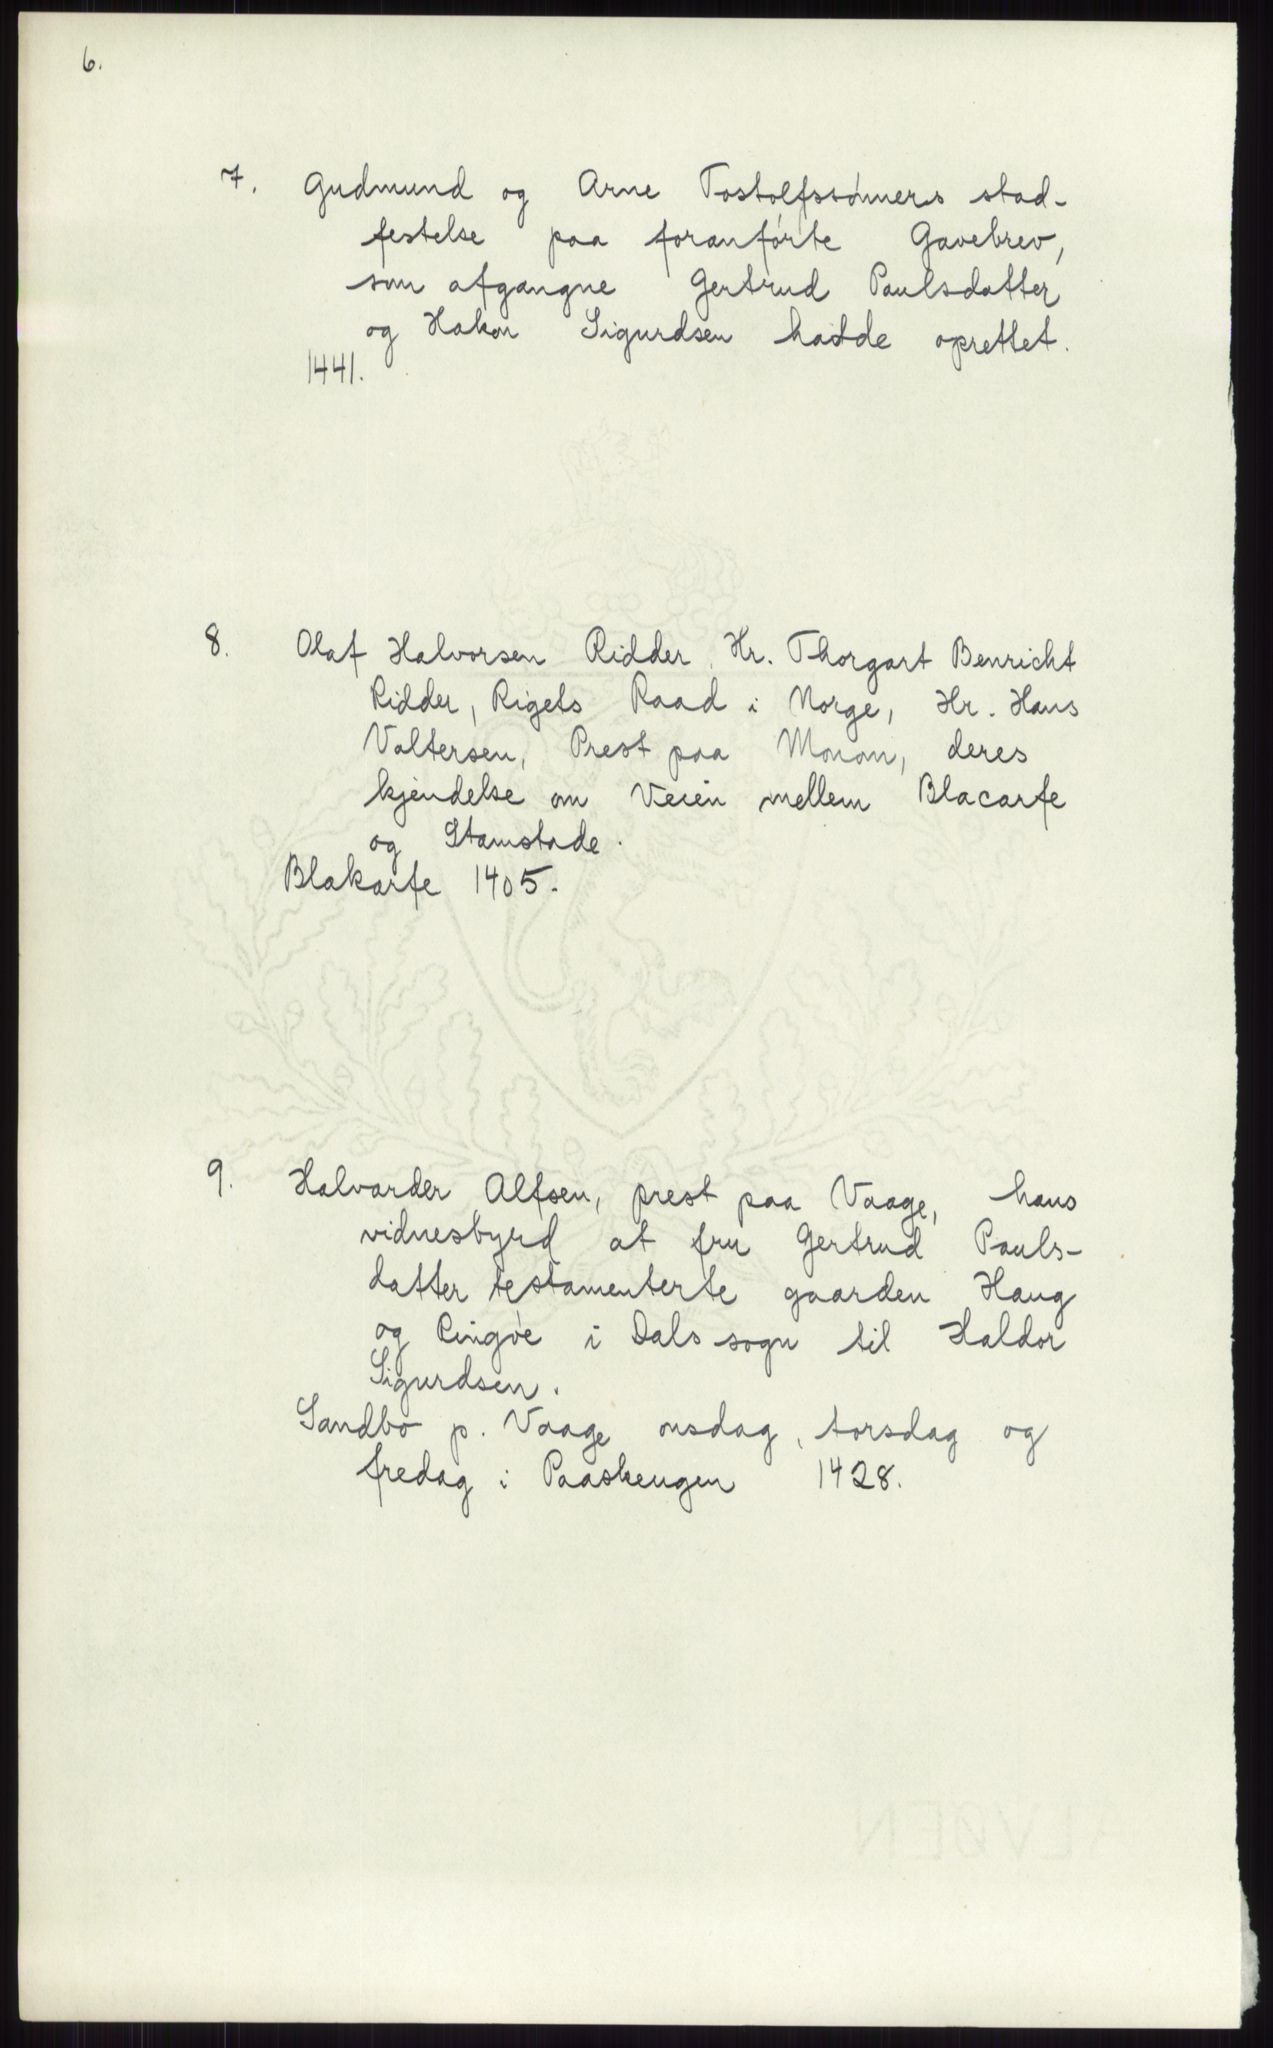 6.
7. Gudmund og Arne Tostolfssönners stad-
festelse paa foranförte Gavebrev,
som afgangne Gertrud Paulsdatter
og Hakon Sigurdsen hadde oprettet.
1441.
8. Olaf Halvorsen Ridder, Hr. Thorgart Benricht
Ridder, Rigets Raad i Norge, Hr. Hans
Valtersen, Prest paa Monom, deres
kjendelse om Veien mellem Blacarfe
og Stamstade.
Blakarfe 1405.
9. Halvarder Alfsen, prest paa Vaage, hans
vidnesbyrd at fru Gertrud Pauls-
datter testamenterte gaarden Haug
og Ringöe i Dals sogn til Haldor
Sigurdsen.
Sandbo p. Vaage onsdag, torsdag og
fredag i Paaskeugen 1428.
ALVØEN